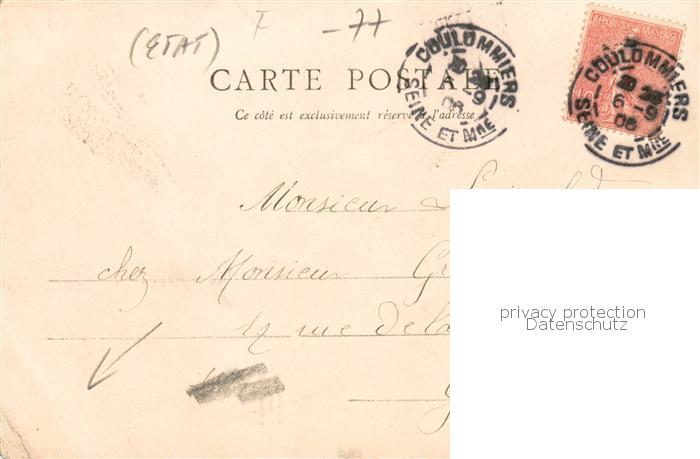 (ETAT) F -77
REPUBLIQUE FRANCAISE
COULOMMIERS
6 -9
06
SEINE ET MNE
COULOMMIERS
6 -9
06
SEINE ET MNE
CARTE POSTALE
Ce côté est exclusivement réservé à l'adresse
Monsieur
chez Monsieur Gr
12 rue de la
privacy protection
Datenschutz